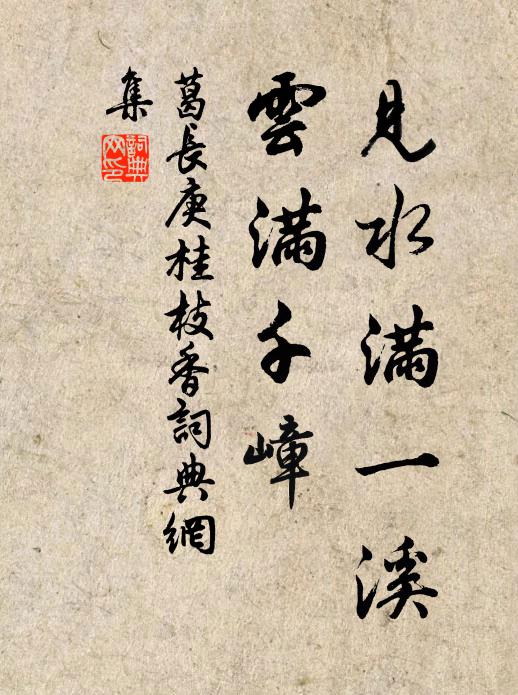 見水滿一溪
雲滿千嶂
葛長庚桂枝香詞典網
集
詞典
网印